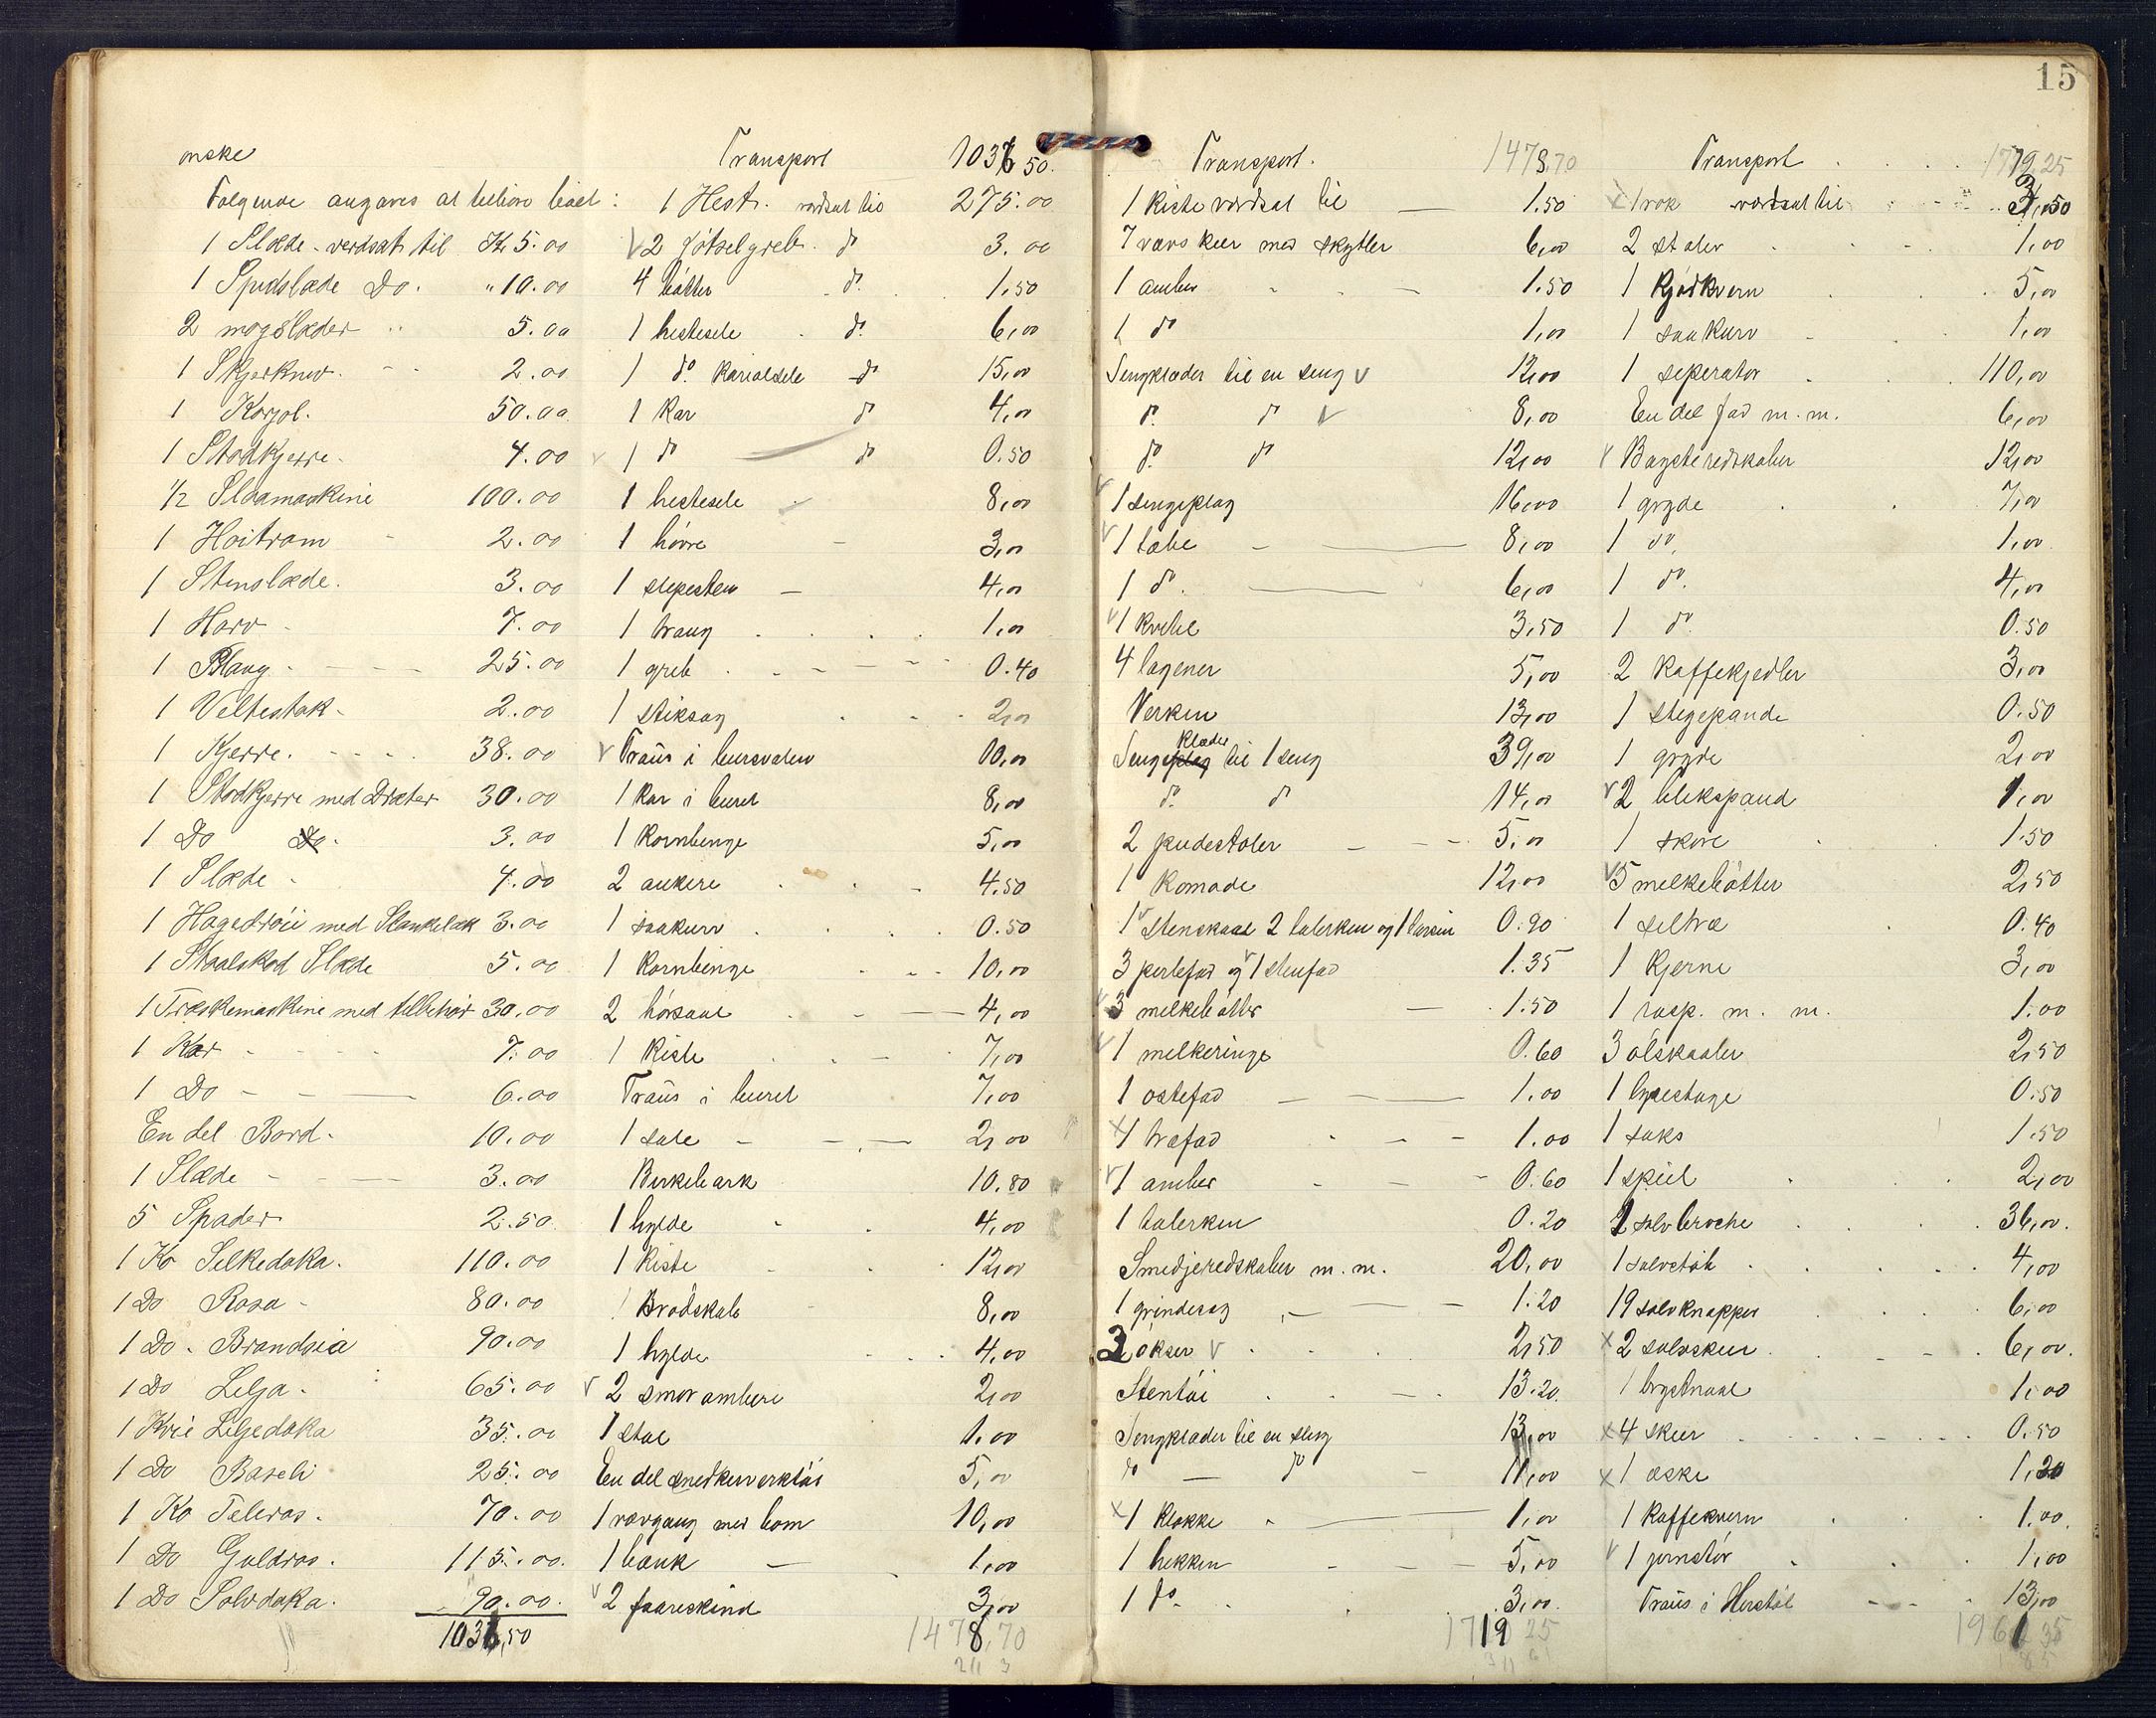 15
ønske
Følgende angaves at tilhøre boet:
1 Slæde - verdsat til Kr 5.00
1 Spidslæde Do. " 10.00
2 møgslæder " 5.00
1 Skjerkniv. 2.00
1 Karjol. 50.00
1 Stodkjerre. 4.00
1/2 Slaamaskine 100.00
1 Høitram 2.00
1 Stenslæde. 3.00
1 Harv 7.00
1 Plaug 25.00
1 Veltestok 2.00
1 Kjerre. 38.00
1 Stodkjerre med Dræter 30.00
1 Do 3.00
1 Slæde 4.00
1 Høgedrøii med Slænkelæk 3.00
1 Staalskod Slæde 5.00
1 Træskemaskine med tilbehør 30.00
1 Kar 7.00
1 Do 6.00
En del Bord. 10.00
1 Slæde 3.00
5 Spader 2.50
1 Ko Silkedokka. 110.00
1 Do Rosa 80.00
1 Do. Brandsia 90.00
1 Do Lilja. 65.00
1 Kvie Liljedokka 35.00
1 Do Baseli 25.00
1 Ko Teleros. 70.00
1 Do Guldros. 115.00
1 Do Solvdokka. 90.00
1036,50
Transport 1036 50.
1 Hest. værdsat til 275.00
2 gjötselgreb. do 3.00
4 bötter do 1.50
1 hestesele do 6,00
1 do. Kariolsele do 15,00
1 Kar do 4,00
1 do do 0.50
1 hestesele 8,00
1 hövre 3,00
1 slipesten 4,00
1 traug 1,00
1 greb 0.40
1 stiksag 2,00
Traus i bursvalen 10,00
1 Kar i buret 8,00
1 Kornbinge 5,00
2 ankere 4.50
1 saakurv 0.50
1 Kornbinge 10,00
2 hövsaal 4,00
1 Kiste 7,00
Traus i buret 7,00
1 sale 2,00
Birkebark 10.80
1 hylde 4,00
1 Kiste 12,00
1 Brödskab 8,00
1 hylde 4,00
2 smörambere 2,00
1 stol 1.00
En del snedkerverktöi 5,00
1 vævgang med bom 10,00
1 bænk 1,00
2 faareskind 3,00
1478,70
Transport. 1478.70
1 Kiste værdsat til 1.50
7 vævskeer med skytler 6,00
1 amber 1.50
1 do 1,00
Sengklæder til en seng 12,00
do. do 8,00
do. do 12,00
1 sengeplag 16,00
1 tæbe 8,00
1 do. 6,00
1 Kvitel 3,50
4 lagener 5,00
Verken 13,00
Sengeklæder til 1 seng 39,00
do. do 14,00
2 pudestoler 5,00
1 Komode 12,00
1 Stenskaal 2 talerken og 1 terrin 0.90
3 perlefad og 1 stenfad 1.35
3 melkebötter 1.50
1 melkeringe 0.60
1 ostefad 1.00
1 træfad 1.00
1 amber 0.60
1 talerken 0.20
Smedjeredskaber m.m. 20,00
1 grindesag 1.20
3 økser 2,50
Stentöi 13.20
Sengklæder til en seng 13,00
do do 11,00
1 Klokke 1,00
1 hekken 5,00
1 do. 3,00
1719 25
Transport 1719 25
1 rok værdsat til 3,50
2 stoler 1,00
1 Kjødkvern 5,00
1 saakurv 1,00
1 seperator 110,00
En del fad m.m. 6,00
Bagsteredskaber 12,00
1 gryde 7,00
1 do. 1,00
1 do. 4,00
1 do 0.50
2 Kaffekjedler 3,00
1 stegepande 0.50
1 gryde 2,00
2 blikspand 1,00
1 skore 1.50
5 melkebötter 2,50
1 seltræ 0.40
1 Kjerne 3,00
1 rasp. m. m. 1.00
3 ölskaaler 2,50
1 lysestage 0.50
1 saks 1.50
1 speil 2,00
2 sølvbroche 36,00
1 sølvstøb 4,00
19 sølvknapper 6,00
2 sølvskeer 6,00.
1 brystnaal 1,00
4 skeer 0.50
1 æske 1,20
1 Kaffekvern 1.00
1 jernstör 1,00
Traus i Herstöl 13,00
1961 35